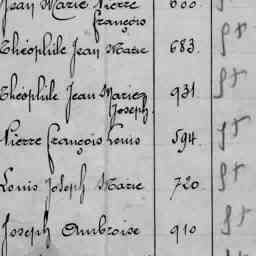 Jean Marie Pierre 600.
François
Théophile Jean Marie 683.
Théophile Jean Marie 931.
Joseph
Pierre François Louis 594.
Louis Joseph Marie 720.
Joseph Ambroise 910